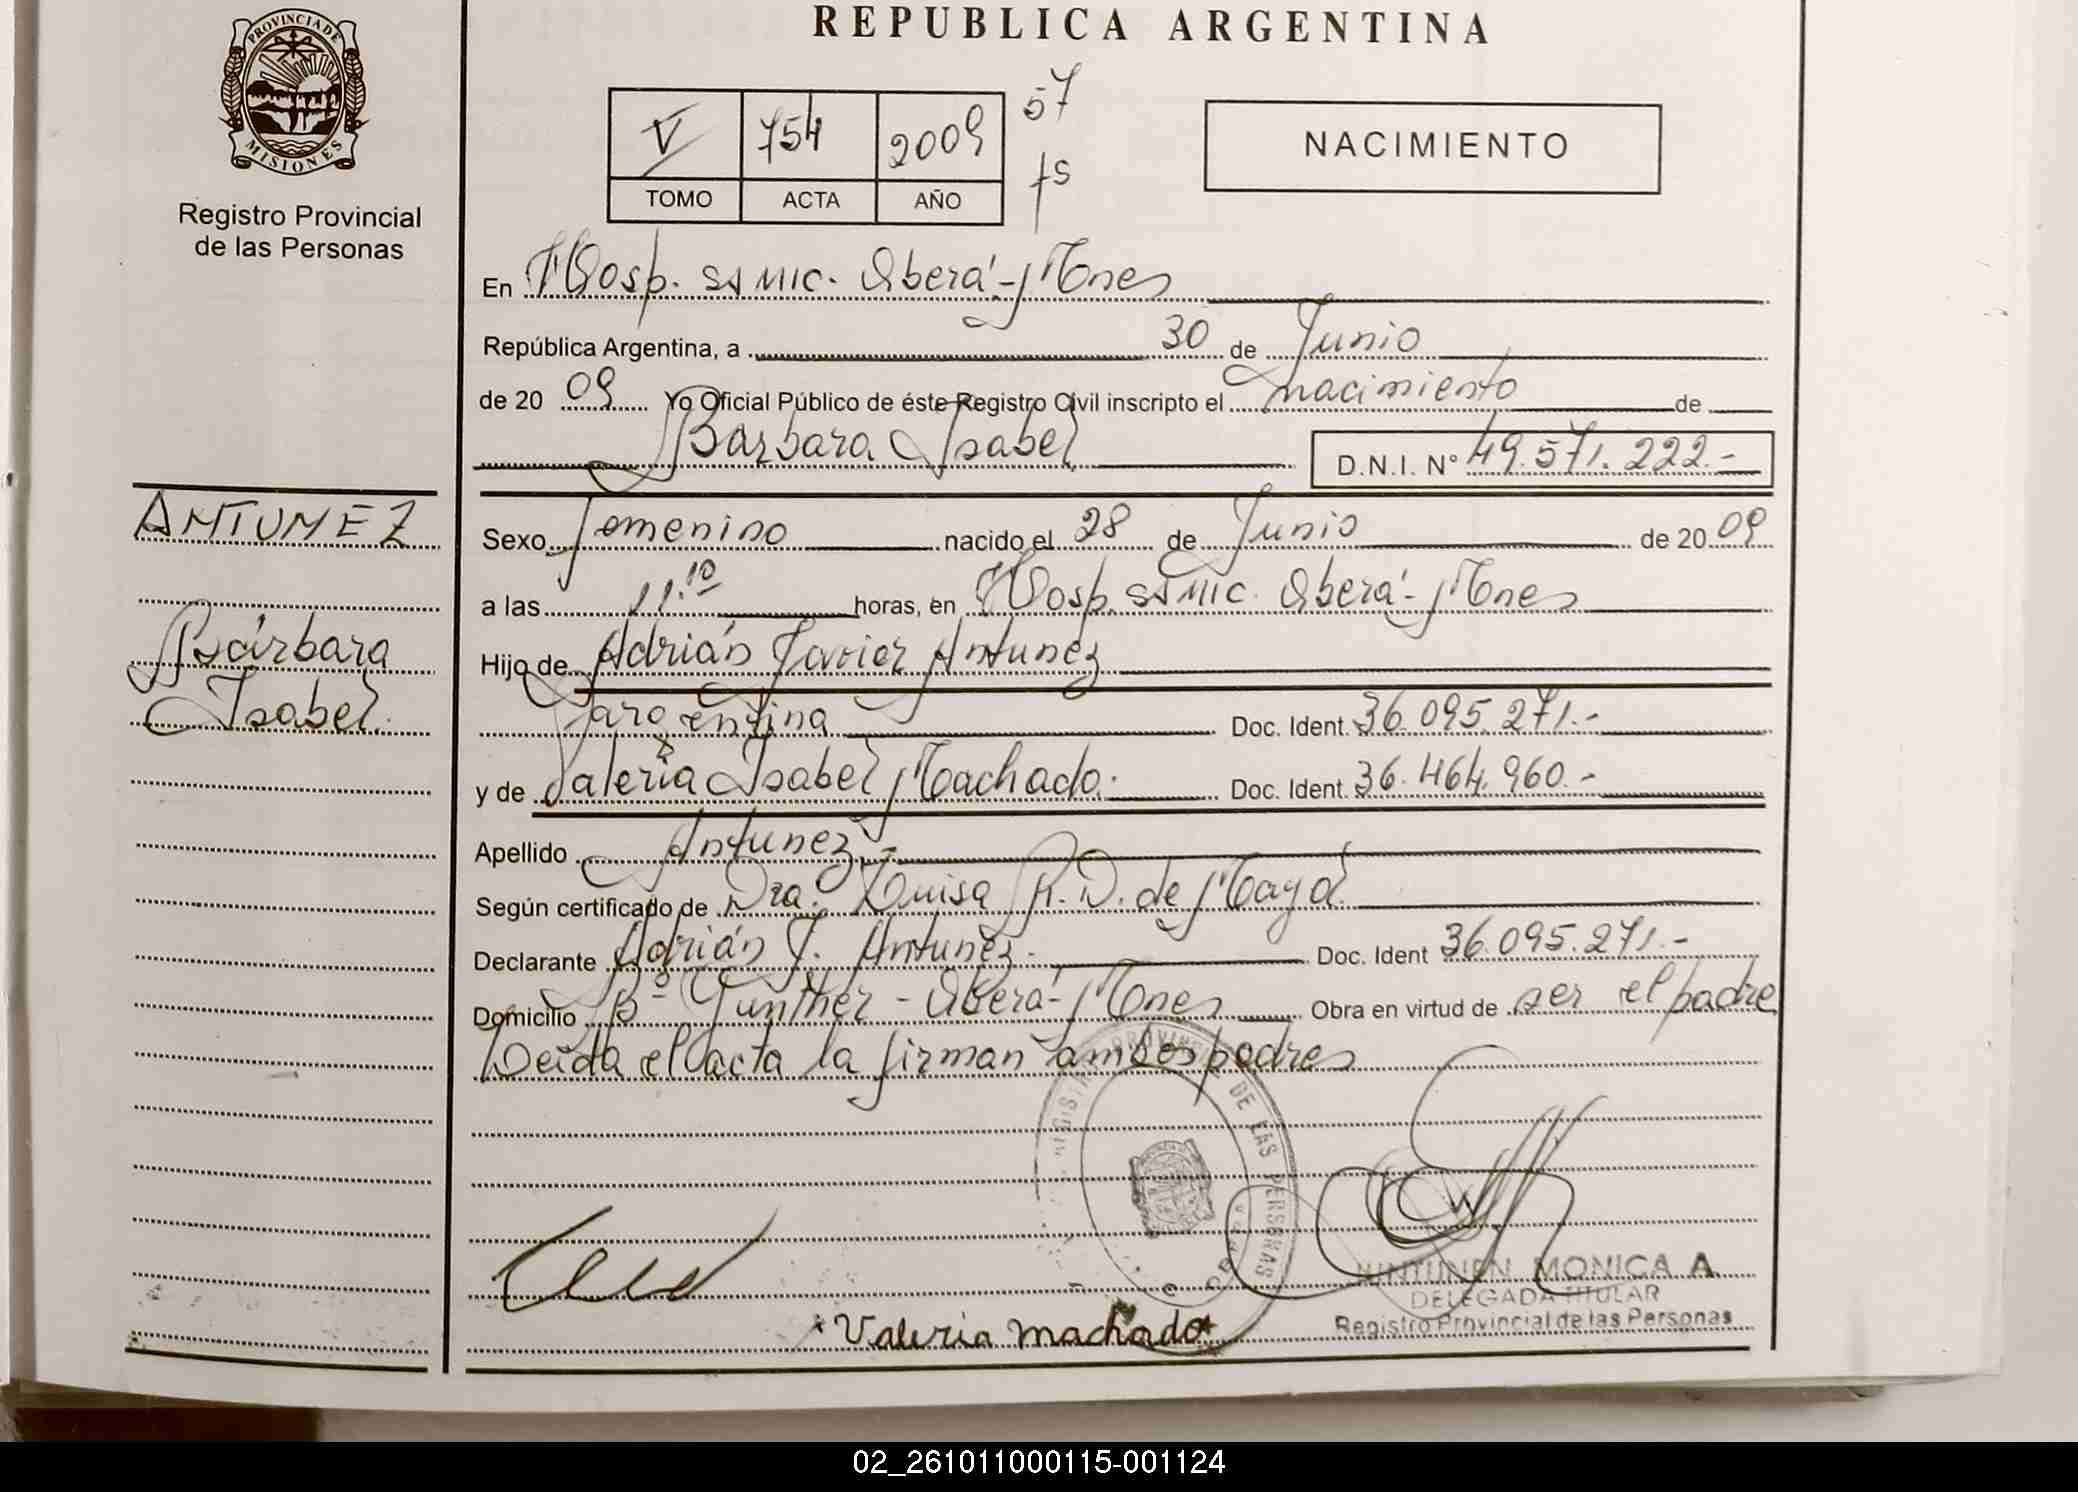 REPUBLICA ARGENTINA
PROVINCIA DE
MISIONES
Registro Provincial
de las Personas
V 754 2009 57
TOMO ACTA AÑO fs
NACIMIENTO
En Hosp. SAMIC. Oberá-Mnes
República Argentina, a 30 de Junio
de 20 09 Yo Oficial Público de éste Registro Civil inscripto el nacimiento de
Bárbara Isabel D.N.I. Nº 49.571.222.-
ANTUNEZ
Bárbara
Isabel.
Sexo femenino nacido el 28 de Junio de 20 09
a las 11.10 horas, en Hosp. SAMIC. Oberá-Mnes
Hijo de Adrián Javier Antunez
argentina Doc. Ident. 36.095.271.-
y de Valeria Isabel Machado. Doc. Ident. 36.464.960.-
Apellido Antunez.-
Según certificado de Dra. Luisa R. D. de Mayol
Declarante Adrián J. Antunez.- Doc. Ident 36.095.271.-
Domicilio Bº Gunther - Oberá-Mnes Obra en virtud de ser el padre
Leida el acta la firman ambos padres
REGISTRO PROVINCIAL DE LAS PERSONAS
Valeria machado
MONICA A
DELEGADA TITULAR
Registro Provincial de las Personas
02_261011000115-001124